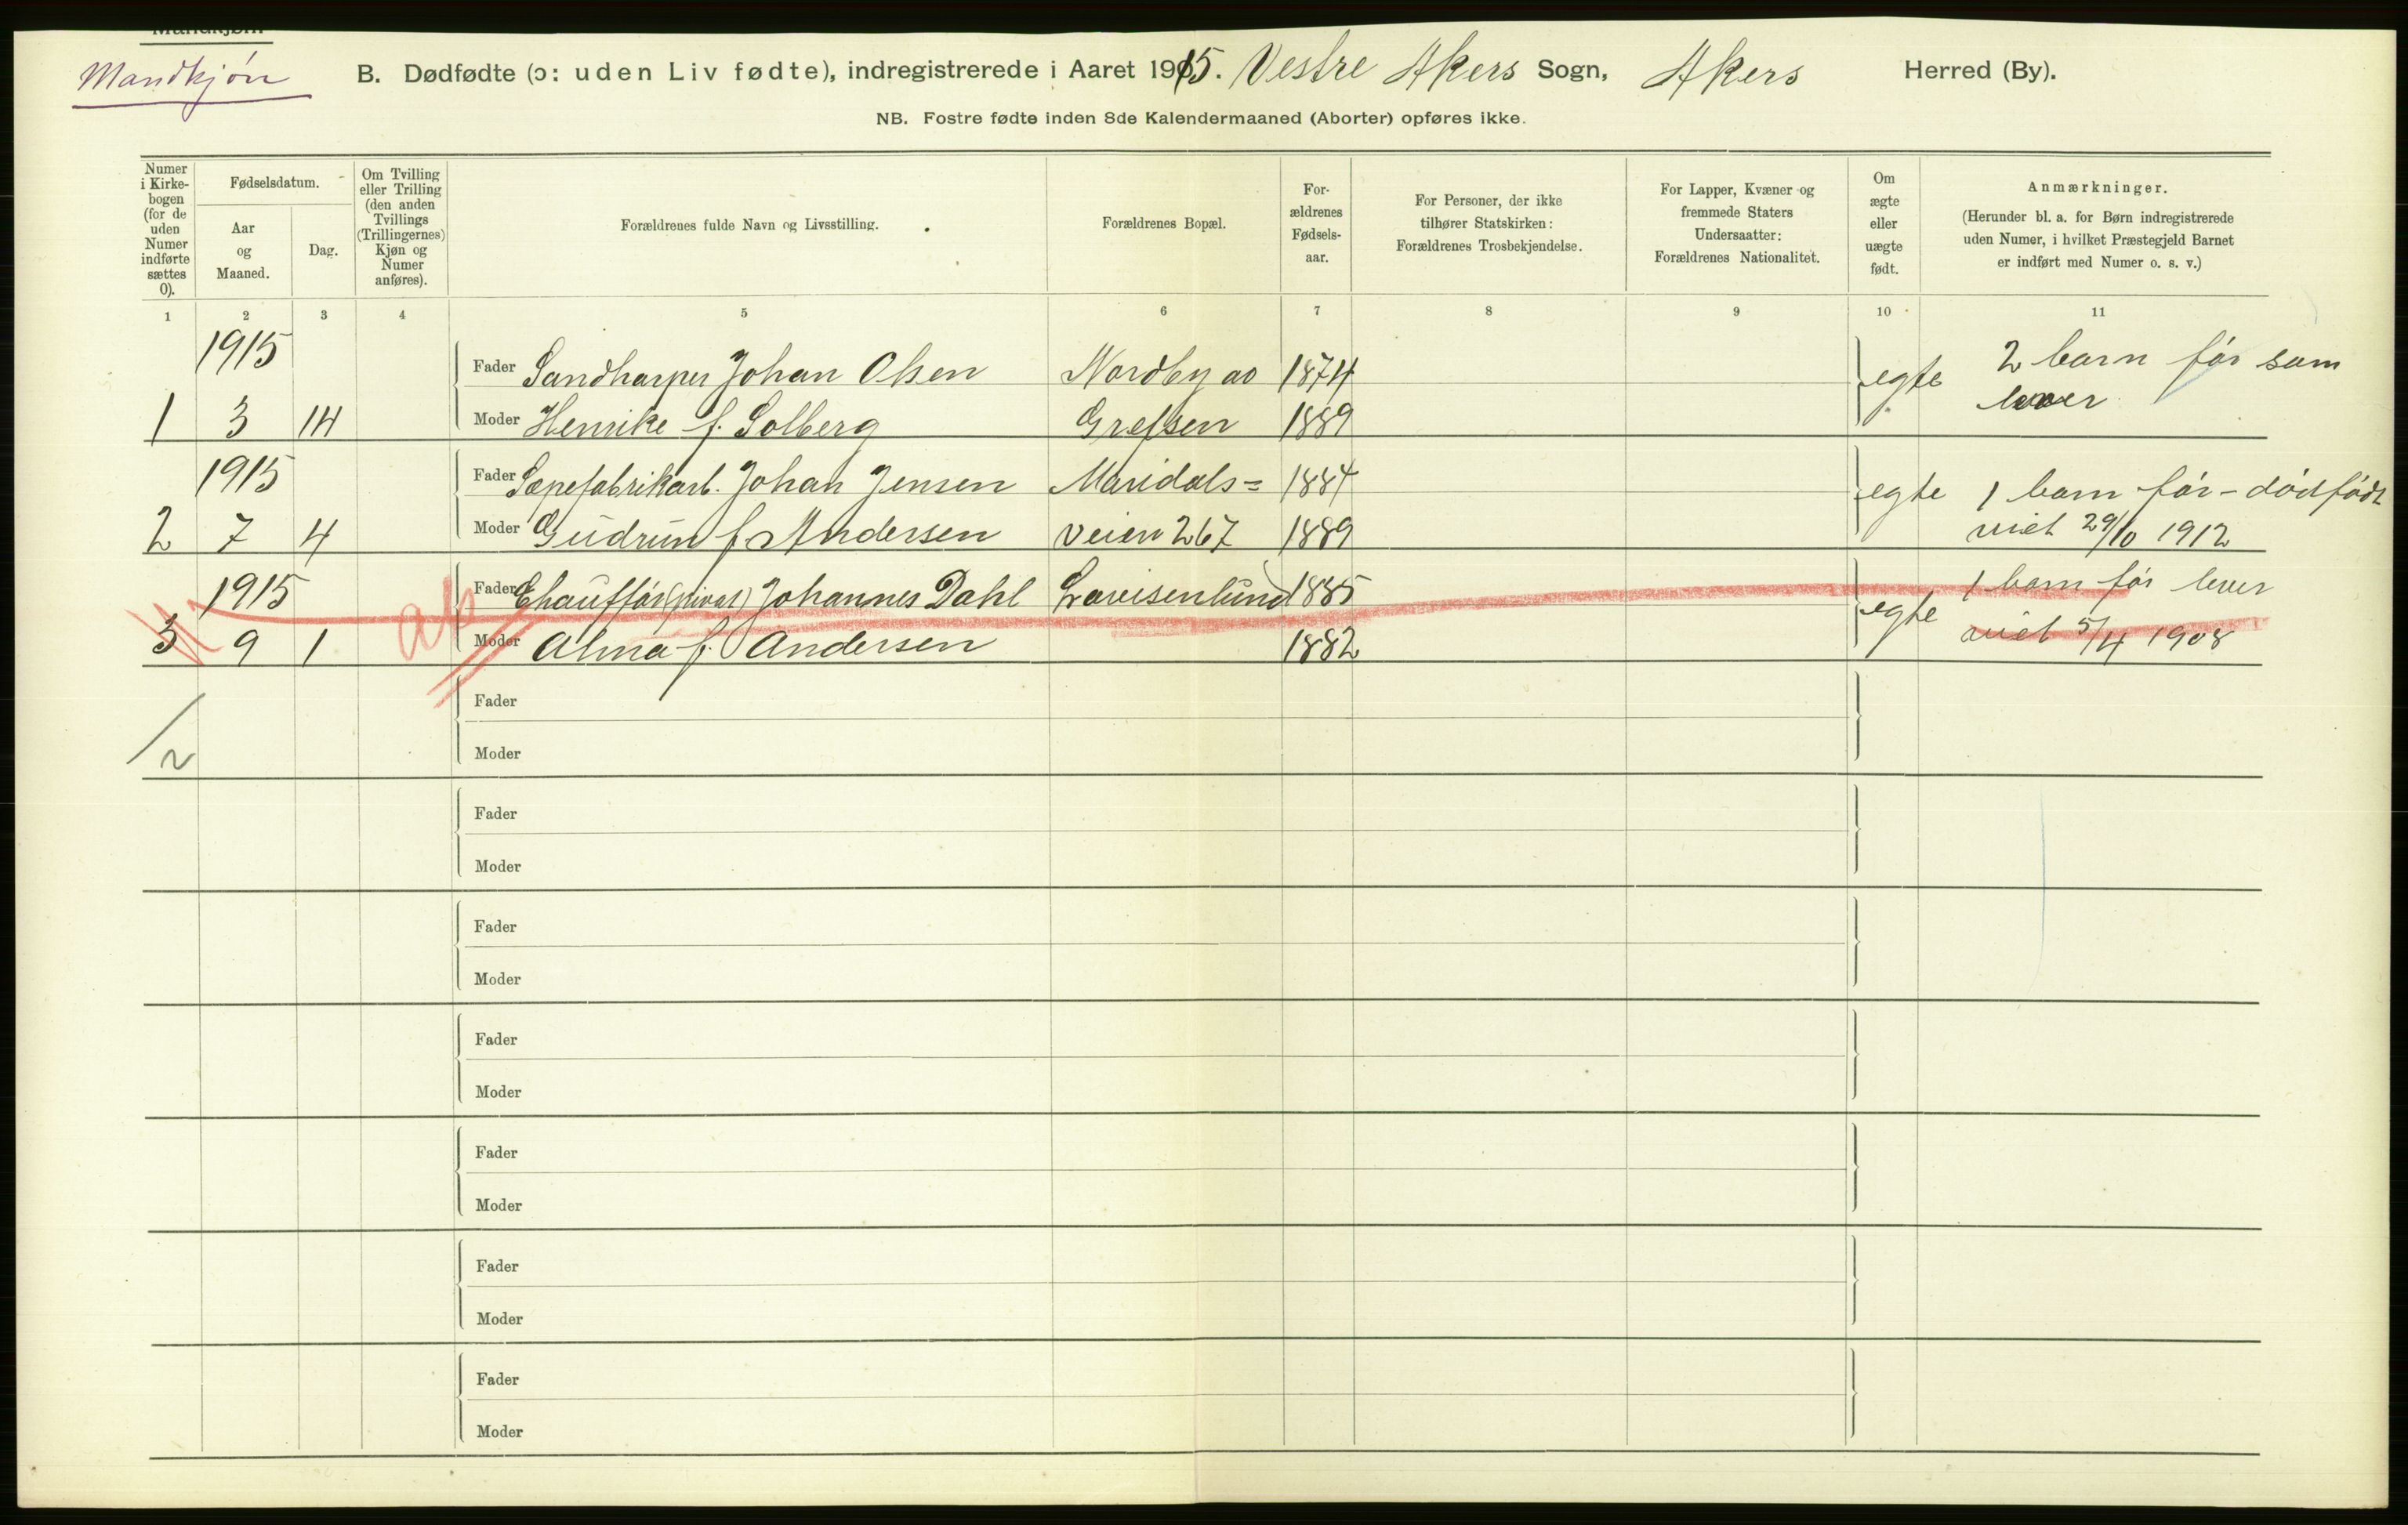 Mandkjøn
Mandkjøn
B. Dødfødte (ɔ: uden Liv fødte), indregistrerede i Aaret 1915. Vestre Akers Sogn, Akers Herred (By).
NB. Fostre fødte inden 8de Kalendermaaned (Aborter) opføres ikke.
Numer
i Kirke-
bogen
(for de
uden
Numer
indførte
sættes
0).
Fødselsdatum.
Aar
og
Maaned.
Dag.
Om Tvilling
eller Trilling
(den anden
Tvillings
(Trillingernes)
Kjøn og
Numer
anføres).
Forældrenes fulde Navn og Livsstilling.
Forældrenes Bopæl.
For-
ældrenes
Fødsels-
aar.
For Personer, der ikke
tilhører Statskirken:
Forældrenes Trosbekjendelse.
For Lapper, Kvæner og
fremmede Staters
Undersaatter:
Forældrenes Nationalitet.
Om
ægte
eller
uægte
født.
Anmærkninger.
(Herunder bl. a. for Børn indregistrerede
uden Numer, i hvilket Præstegjeld Barnet
er indført med Numer o. s. v.)
1 2 3 4 5 6 7 8 9 10 11
1915 Fader Sandharper Johan Olsen Nordby ao 1874 egte 2 barn før som
1 3 14 Moder Henrike f. Solberg Grefsen 1889 lever
1915 Fader Sæpefabrikarb. Johan Jensen Maridals= 1884 egte 1 barn før - dødfødt
2 7 4 Moder Gudrun f. Andersen veien 267 1889 viet 29/10 1912
1915 Fader Chauffør (privat) Johannes Dahl Lovisenlund 1885 egte 1 barn før lever
3 9 1 ab Moder Alma f. Andersen 1882 viet 5/4 1908
Fader
2
Moder
Fader
Moder
Fader
Moder
Fader
Moder
Fader
Moder
Fader
Moder
Fader
Moder